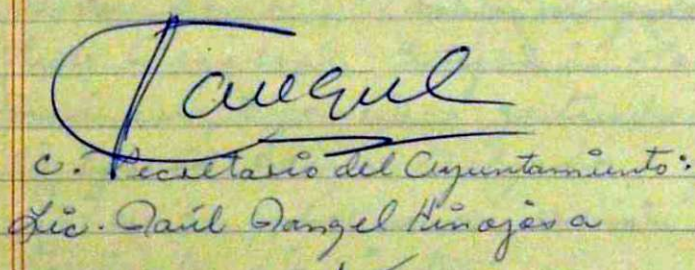 C. Secretario del Ayuntamiento:
Lic. Raúl Rangel Hinojosa